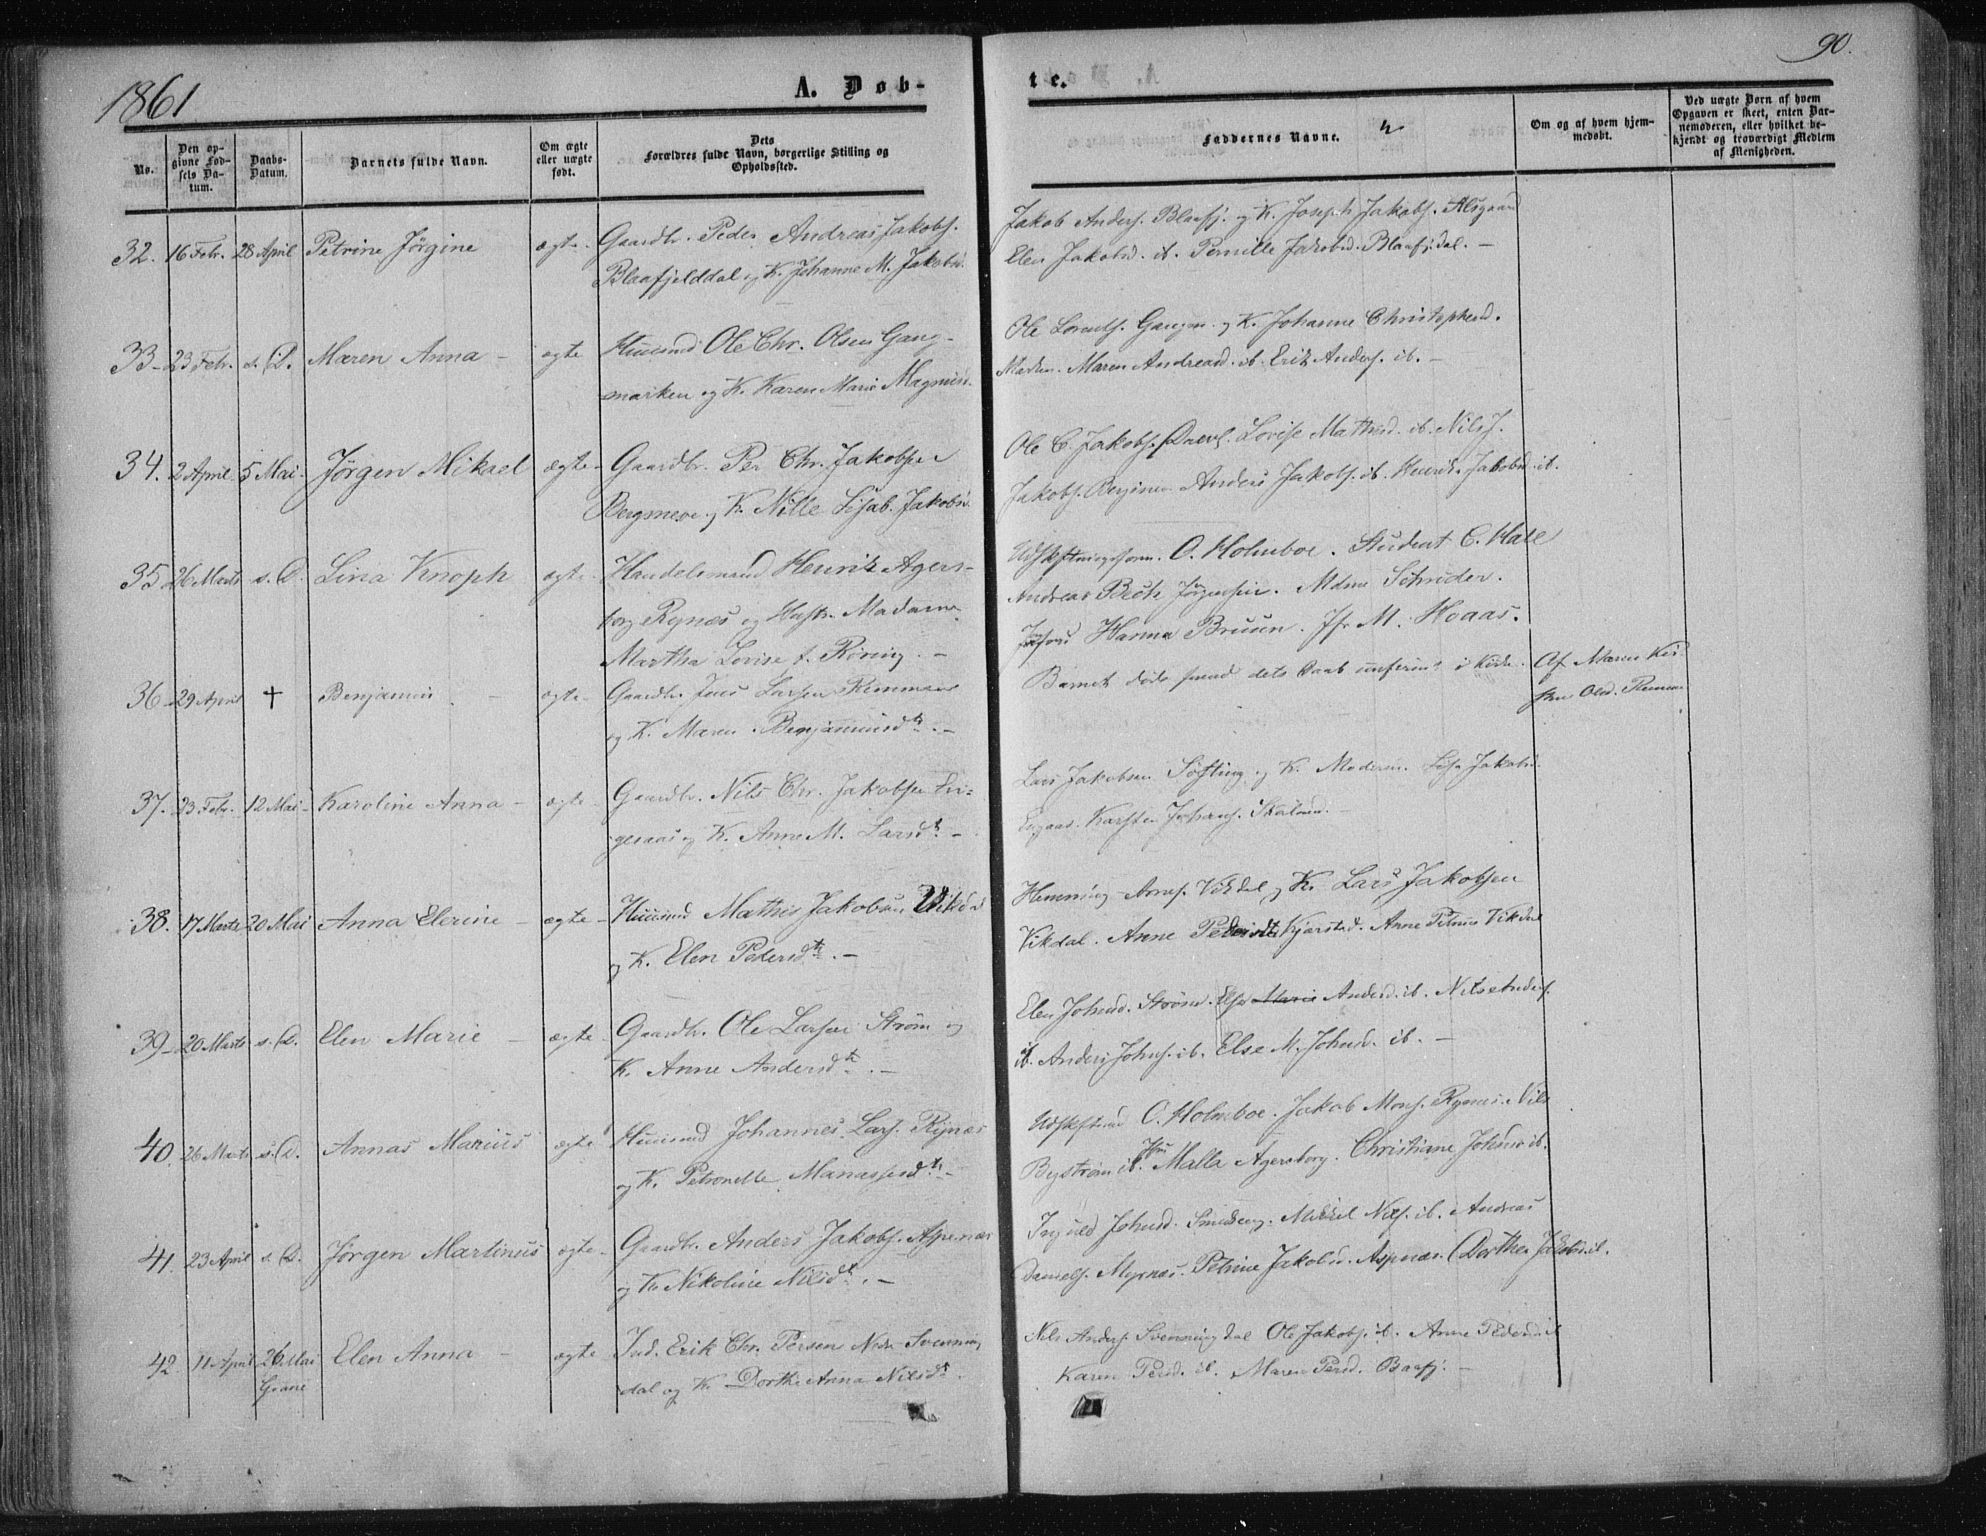 1861
A. Døb-
te.
90.
No.
Den op-
givne Fød-
sels Da-
tum.
Daabs-
Datum.
Barnets fulde Navn.
Om ægte
eller uægte
født.
Dets
Forældres fulde Navn, borgerlige Stilling og
Opholdssted.
Faddernes Navne.
Om og af hvem hjem-
medøbt.
Ved uægte Børn af hvem
Opgaven er skeet, enten Bar-
nemoderen, eller hvilket be-
kjendt og troværdigt Medlem
af Menigheden.
32. 16 Febr. 28 April Petrine Jørgine ægte Gaardbr. Peder Andreas Jakobs.
Blaafjelddal og K. Johanne M. Jakobsd.
Jakob Anders. Blaafj. og K. Joseph Jakobs. Alsgaard
Elen Jakobsd. ib. Pernille Jakobsd. Blaafj.dal. —
33 23 Febr. s. D. Maren Anna — ægte Huusmd Ole Chr. Olsen Gang-
marken og K. Karen Marie Magnusd.
Ole Lorents. Gangm. og K. Johanne Christophersd.
Marken. Maren Andreasd. ib. Erik Anders. ib. —
34. 2 April 5 Mai. Jørgen Mikael ægte Gaardbr. Per Chr. Jakobsen
Bergsnev og K. Nille Lisab. Jakobsd.
Ole C. Jakobs. Lovise Mathisd. ib. Nils J.
Jakobs. Anders Jakobs. ib. Henrik Jakobsd. ib.
35 26 Marts s. D. Lina Knoph ægte Handelsmand Henrik Agers-
borg Rynæs og Hustr. Madame
Martha Lovise f. Røring. —
O. Holmboe. Student C. Hals
Andreas Beck Jørgensen. Mdme Schrøder.
Jomfru Hanna Bruun. Jfr M. Hoaas.
36 29 April † Benjamin ægte Gaardbr. Jens Larsen
og K. Maren Benjaminsdtr. —
Barnet døde forend dets Daab i Kirke.
Af Maren Kir-
sten Olsd.
37. 23 Febr. 12 Mai Karoline Anna — ægte Gaardbr. Nils Chr. Jakobsen En-
geaas og K. Anne M. Larsdtr. —
Lars Jakobsen Søfting og K. Moderen. Lisa Jakobsd.
Engaas. Karsten Johans. —
38. 17 Marts 20 Mai Anna Elerine — ægte Huusmd Mathis Jakobsen Vikdal
og K. Elen Pedersdtr. —
Hemming Arns. Vikdal og K. Lars Jakobsen
Vikdal. Anne Pedersdtr Kjærstad. Anne Petrine Vikdal
39 20 Marts s. D. Elen Marie — ægte Gaardbr. Ole Larsen Strøm og
K. Anne Andersdtr. —
Elen Johnsd. Strøm. Else Marie Andersd. ib. Nils Anders.
ib. Anders Johns. ib. Else M. Johnsd. ib. —
40. 26 Marts s. D. Annas Marius ægte Huusmd Johannes Lars. Rynæs
og K. Petronelle Manassesdtr. —
O. Holmboe. Jakob Mons. Rynæs. Nils
Byström ib. Jfr Malla Agersborg. Christiane Johnsd ib.
41. 23 April s. D. Jørgen Martinus ægte Gaardbr. Anders Jakobs. Aspenæs
og K. Nikoline Nilsdtr. —
Johnsd. Mikkel Nils. ib. Andreas
Daniels. Myrnæs. Petrine Jakobsd. Aspnæs. Dorthea Jakobsd. ib.
42. 11 April 26 Mai
Grane
Elen Anna — ægte Ind. Erik Chr. Persen Nedr. Svenning-
dal og K. Dorthe Anna Nilsdtr.
Nils Anders. Svenningdal Ole Jakobs. ib. Anne Pedersd. ib
Karen Persd. ib. Maren Persd. Blaafj. —